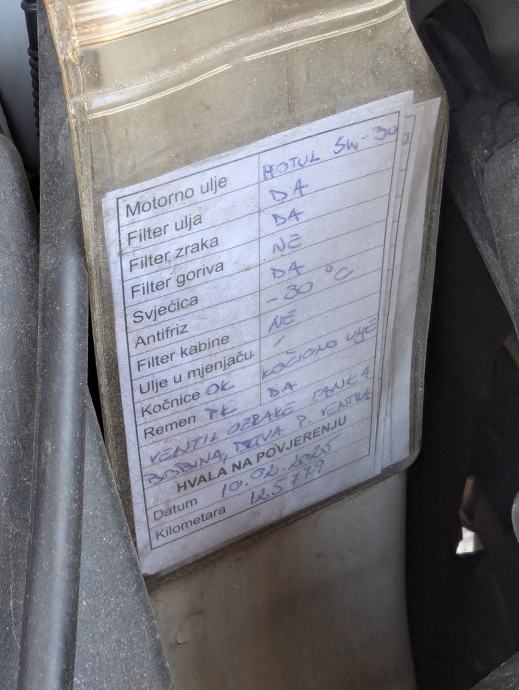 Motorno ulje MOTUL 5W-30
Filter ulja DA
Filter zraka DA
Filter goriva NE
Svjećica DA
Antifriz -30 °C
Filter kabine NE
Ulje u mjenjaču /
Kočnice OK KOČIONO ULJE
Remen PK DA
VENTIL ODRAKE TANKA
BOBINA, P. VENTILA
HVALA NA POVJERENJU
Datum 10.02.2025
Kilometara 125779